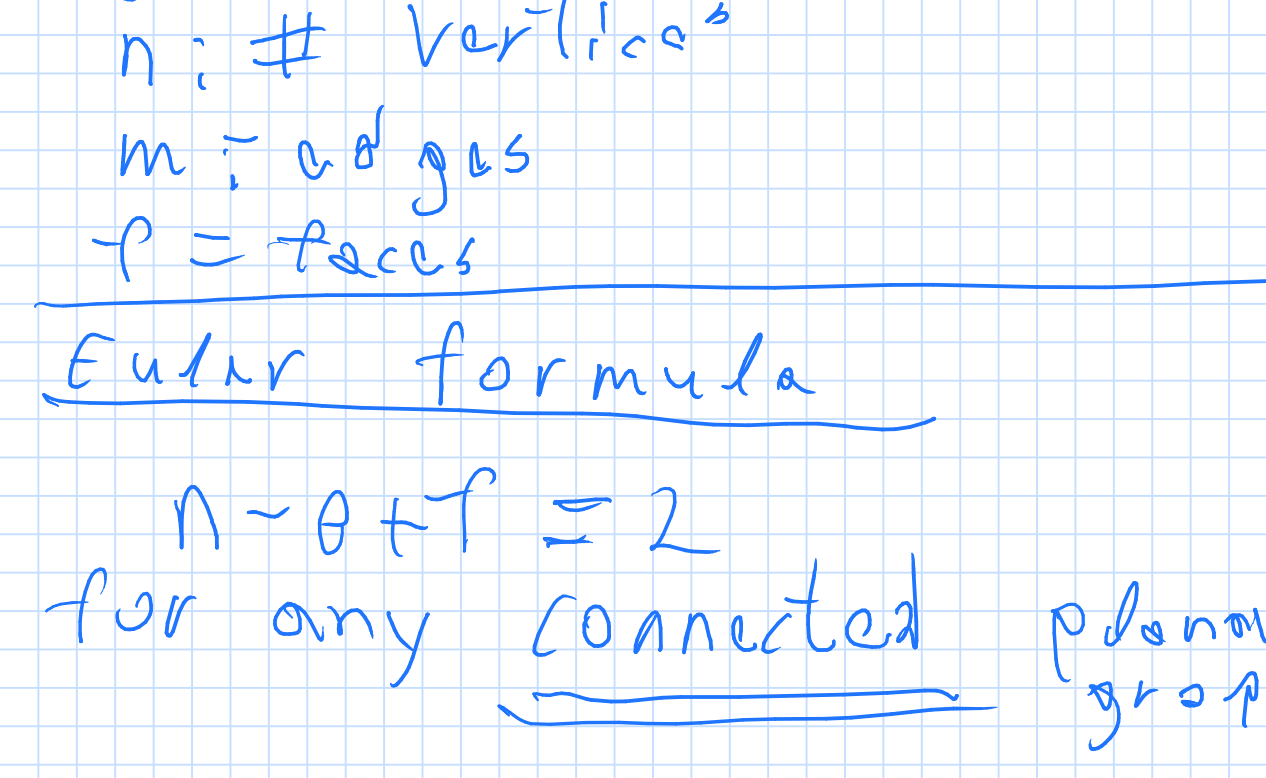 n: # vertices
m: edges
f = faces
Euler formula
n - e + f = 2
for any connected planar
grap